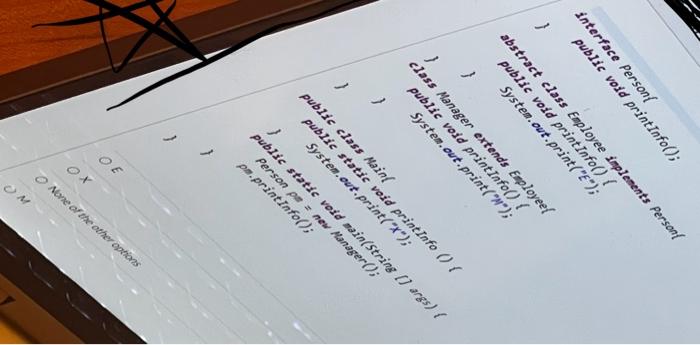 interface Person{
public void printInfo();
}
abstract class Employee implements Person{
public void printInfo() {
System.out.print("E");
}
}
class Manager extends Employee{
public void printInfo() {
System.out.print("M");
}
}
public class Main{
public static void printInfo () {
System.out.print("X");
}
public static void main(String [] args) {
Person pm = new Manager();
pm.printInfo();
}
}
E
X
None of the other options
M